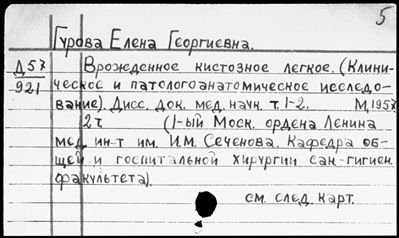 5
Гурова Елена Георгиевна.
Д57 Врожденное кистозное легкое. (Клини-
921 ческое и патологоанатомическое исследо-
вание). Дисс. док. мед. наук. т. 1-2. М, 1957
2 т. (1-ый Моск. ордена Ленина
мед. ин-т им. И.М. Сеченова. Кафедра об-
щей и госпитальной хирургии сан-гигиен.
факультета).
см. след. карт.